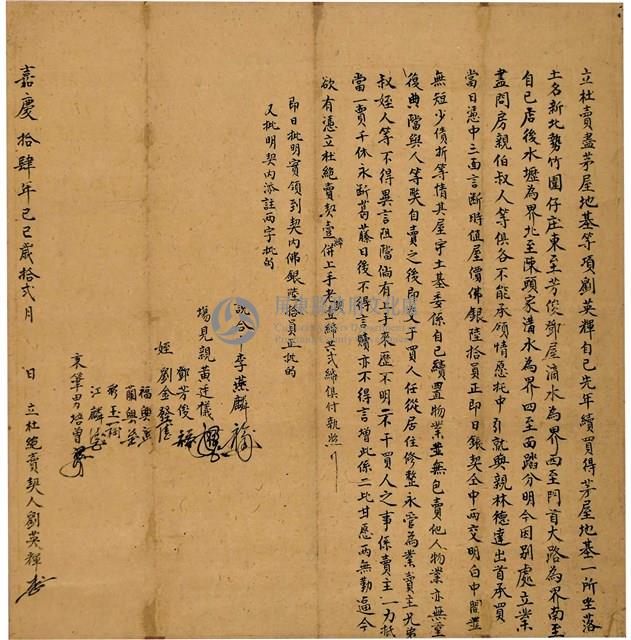 立杜賣盡茅屋地基等項劉英輝自己先年續買得茅屋地基一所坐落
土名新北勢竹圍仔庄東至芳俊鄰屋滴水為界西至門首大路為界南至
自己居後水壢為界北至陳頭家溝水為界四至面踏分明今因別處立業
盡問房親伯叔人等俱各不能承領情愿托中引就與親林德達出首承買
當日憑中三面言斷時值屋價佛銀陸拾員正即日銀契仝中兩交明白中間並
無短少債折等情其屋宇土基委係自己續置物業並無包賣他人物業亦無重
復典當與人等弊自賣之後即交于買人任從居住修整永管為業賣主兄弟
叔姪人等不得異言阻當倘有上手來歷不明不干買人之事係賣主一力抵
當一賣千休永斷葛藤日後不得言贖亦不得言增此係二比甘愿兩無勒逼今
欲有憑立杜絕賣契壹併上手老契共弍紙俱付執照
即日批明實領到契內佛銀陸拾員正批的
又批明契內添註兩字批的
說合中李燕麟
場見親黃廷儀
鄧芳俊
姪劉金發
福興
蘭興
秀玉
江麟
秉筆男培曾
嘉慶拾肆年己巳歲拾弍月 日立杜絕賣契人劉英輝
屏東縣政府文化處